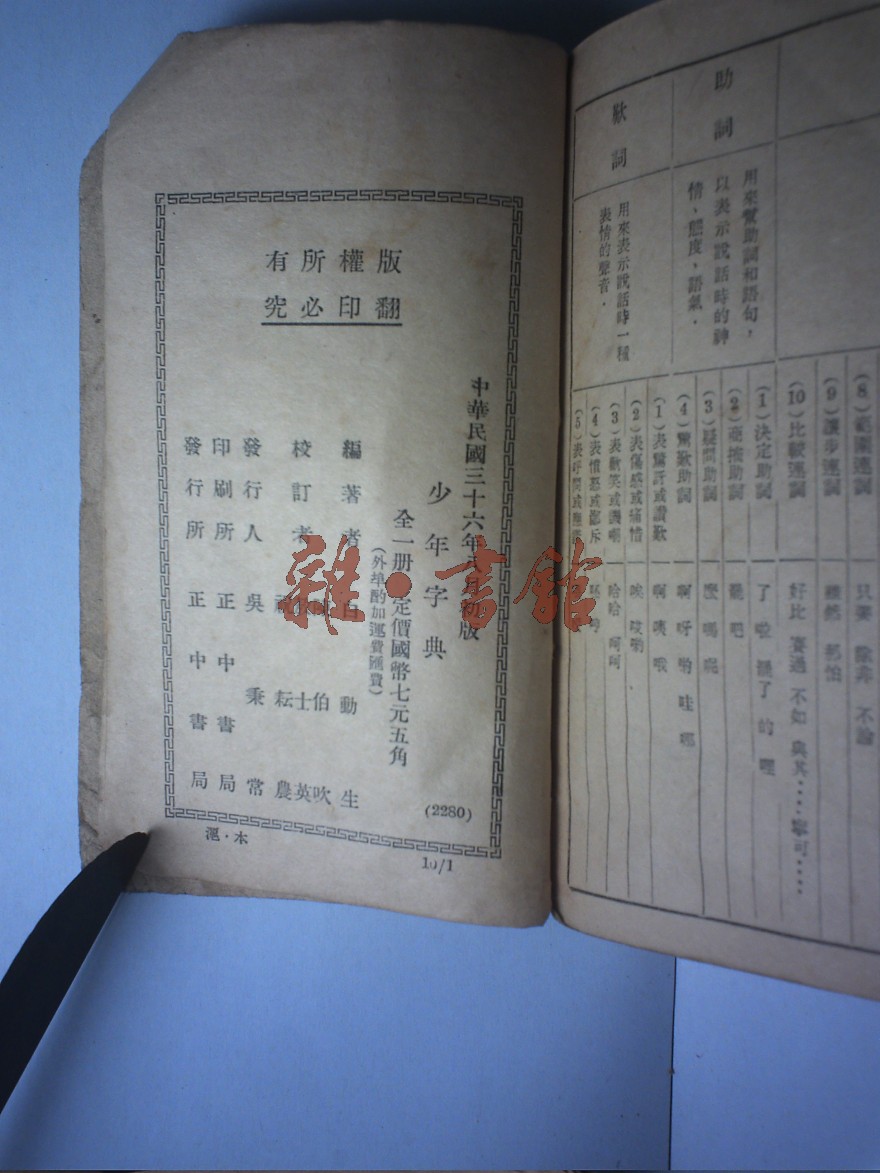 助詞
用來幫助詞和語句，
以表示說話時的神
情、態度、語氣．
歎詞
用來表示說話時一種
表情的聲音．
(8)範圍連詞
只要 除非 不論
(9)讓步連詞
雖然 縱
(10)比較連詞
好比 賽過 不如 與其……寧可……
(1)決定助詞
了 啦 罷了 的 哩
(2)商榷助詞
罷 吧
(3)疑問助詞
麼 嗎 呢
(4)驚歎助詞
啊 呀 喲 哇 哪
(1)表驚訝或讚歎
啊 咦 哦
(2)表傷感或痛惜
唉 哎喲
(3)表歡笑或譏嘲
哈哈 呵呵
(4)表憤怒或鄙斥
(5)表呼問或
版權所有
翻印必究
中華民國三十六年 月初版
少年字典
全一册 定價國幣七元五角
(外埠酌加運費匯費)
編著者 白動生
校訂者 伯吹 士英 耘農
發行人 吳秉常
印刷所 正中書局
發行所 正中書局
(2280)
滬·本
10/1
雜·書館